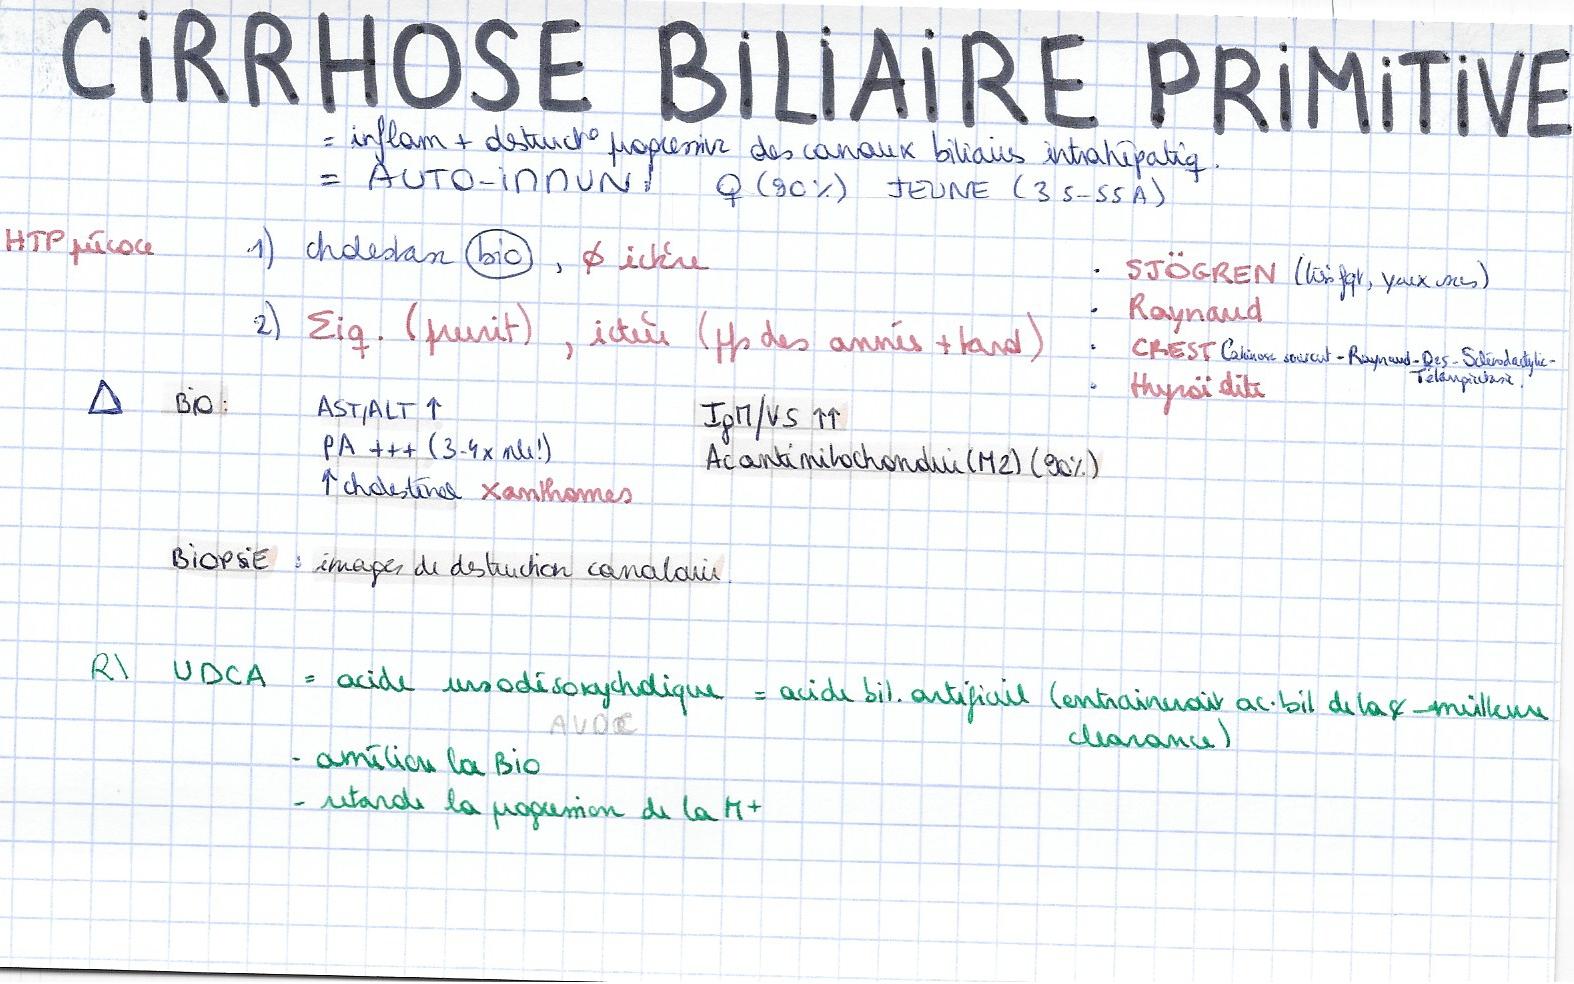 CIRRHOSE BILIAIRE PRIMITIVE
= inflam + destruct° progressive des canaux biliaires intrahépatiq.
= AUTO-IMMUN! ♀ (90%) JEUNE (35-55A)
HTP précoce
1) cholestase bio, ∅ ictère
2) Σiq. (prurit), ictère (pfs des années + tard)
· SJÖGREN (, yeux secs)
· Raynaud
· CREST Calcinose souscut - Raynaud - Oes - Sclérodactylie - Télangiectasie.
· thyroïdite
Δ BIO: AST/ALT ↑ IgM/VS ↑↑
PA +++ (3-4x nle!) Ac antimitochondrie (M2) (90%)
↑ cholestérol xanthomes
BIOPSIE : images de destruction canalaire.
R\ UDCA = acide ursodésoxycholique = acide bil. artificiel (entrainerait ac. bil de la - meilleure clearance)
AUDC
- améliore la Bio
- retarde la progression de la M+